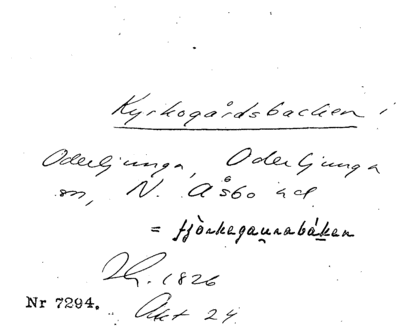 Kyrkogårdsbacken i
Oderljunga, Oderljunga
sn, N. Åsbo hd
= tjörkegaunabáken
1826
Nr 7294. Akt 24